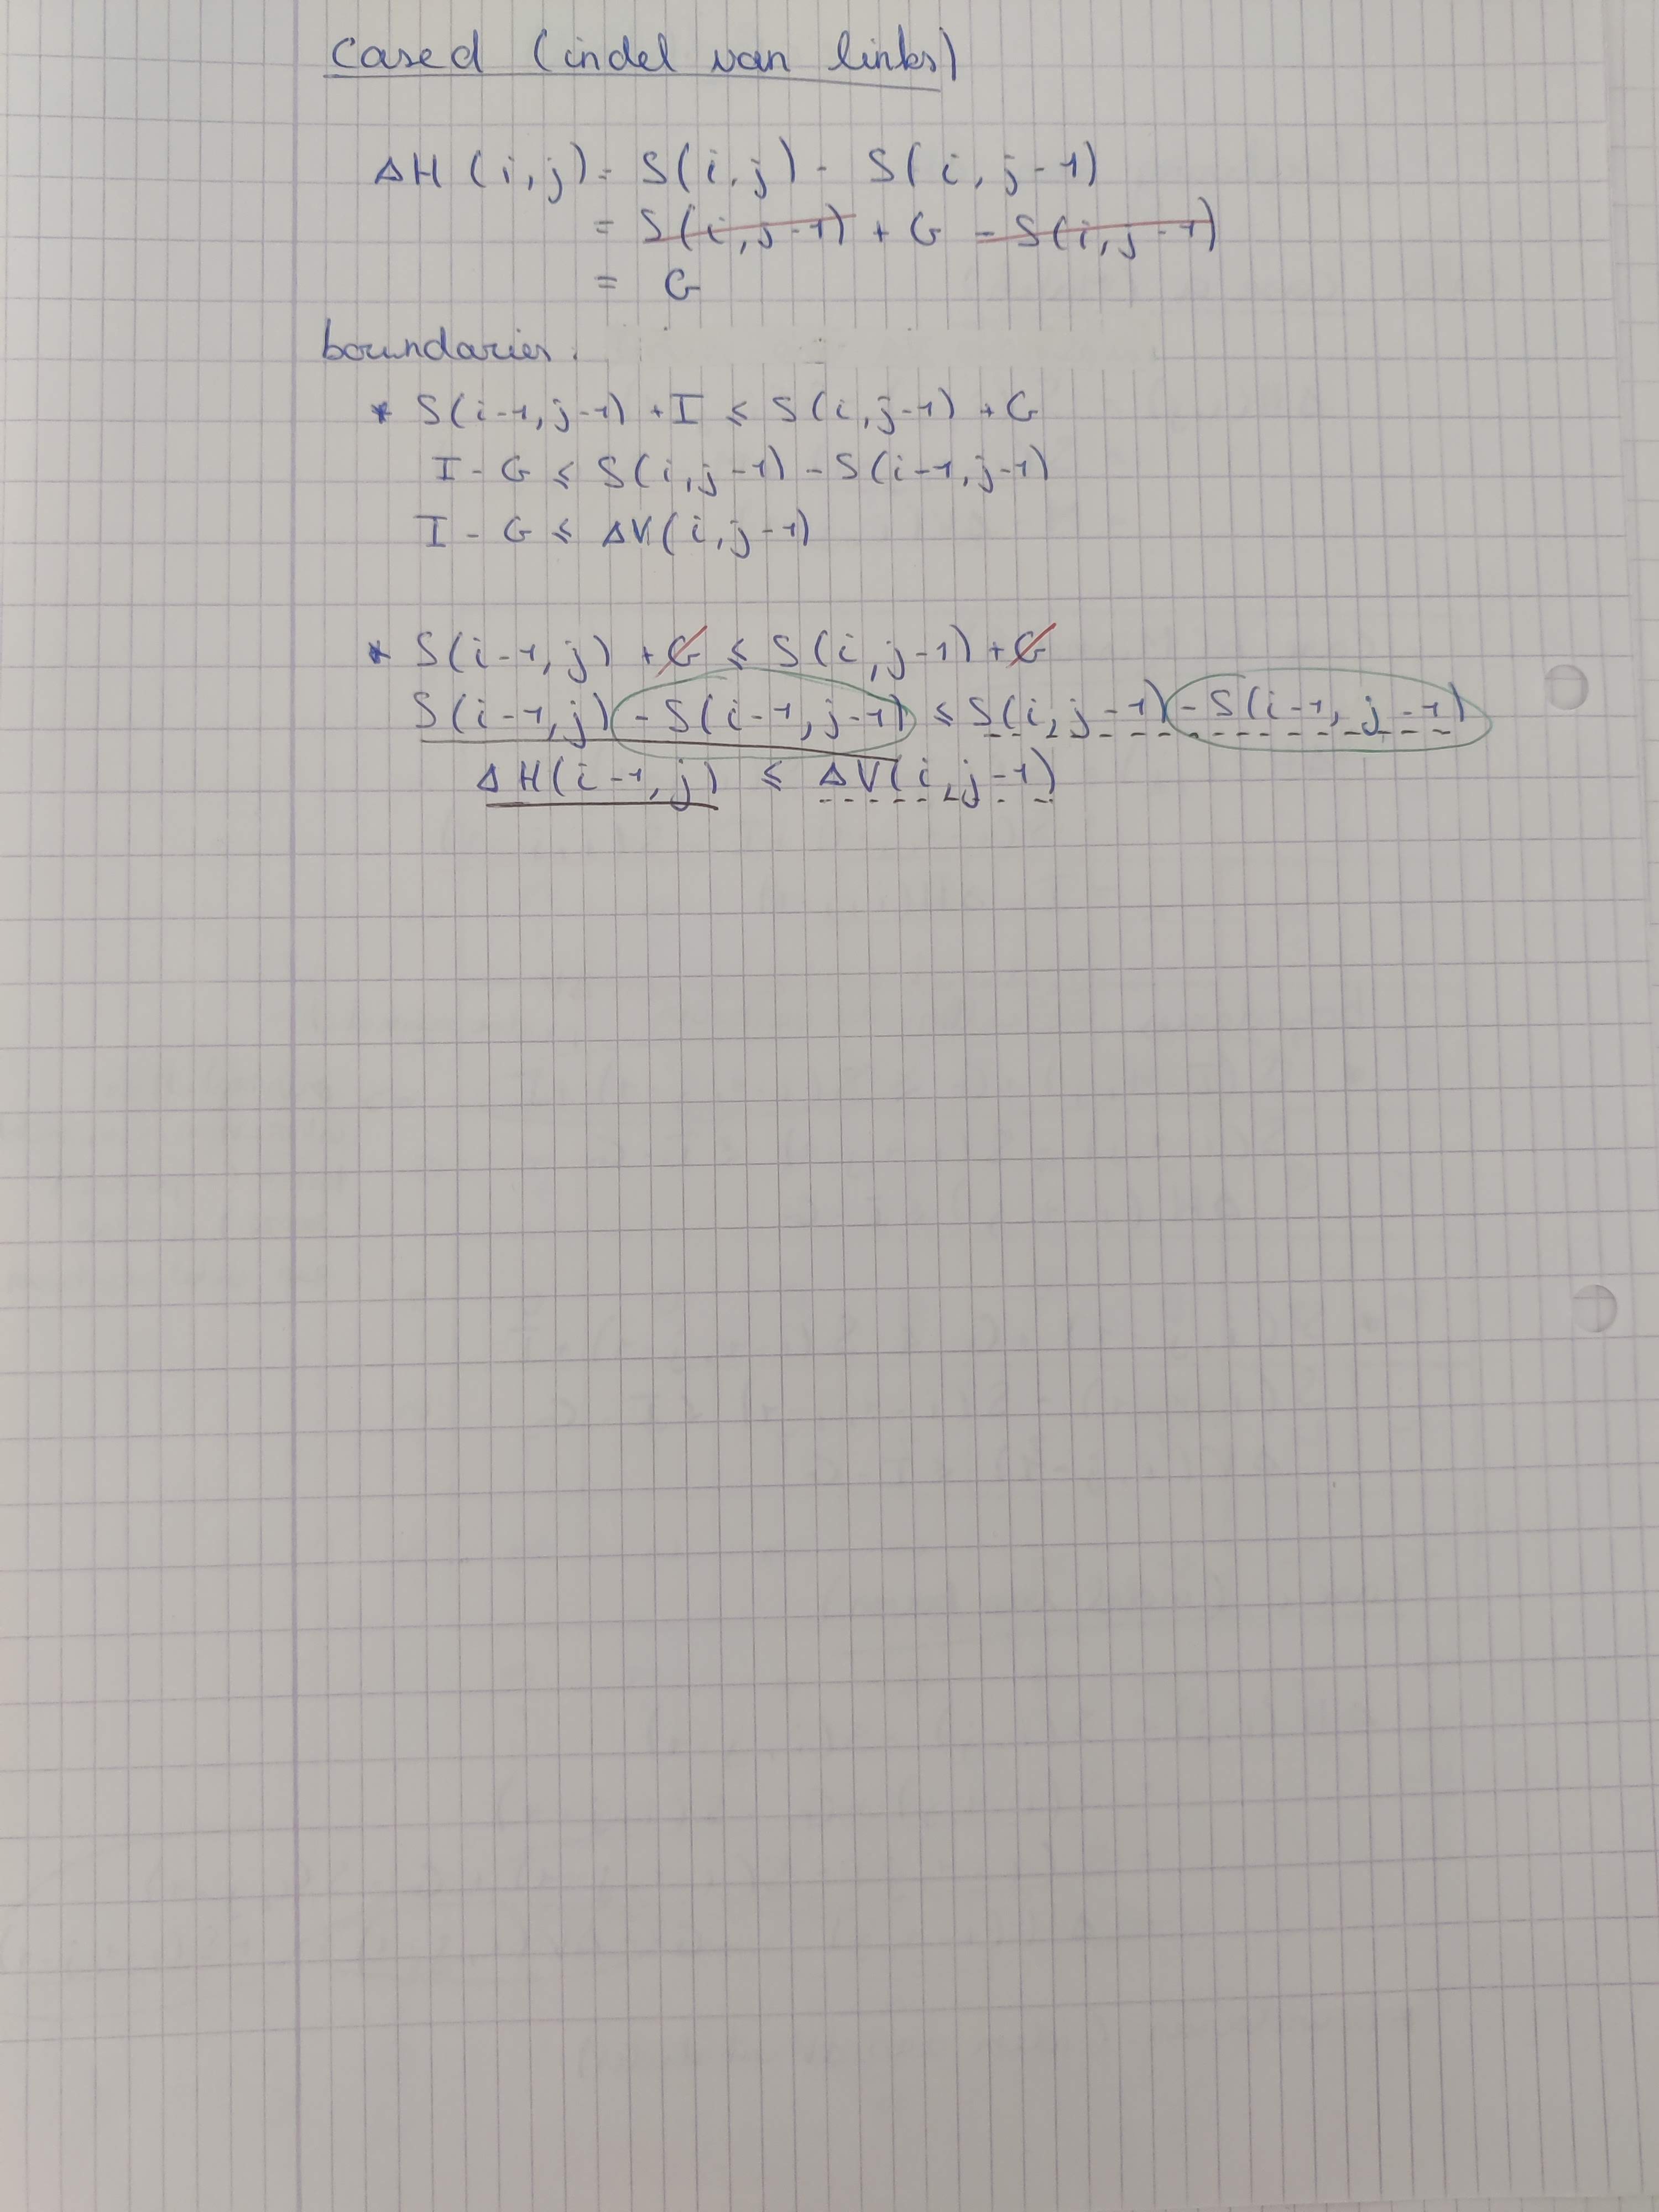 Case d (indel van links)
ΔH (i,j) = S(i,j) - S(i,j-1)
= S(i,j-1) + G - S(i,j-1)
= G
boundaries:
* S(i-1,j-1) + I ≤ S(i,j-1) + G
I - G ≤ S(i,j-1) - S(i-1,j-1)
I - G ≤ ΔV(i,j-1)
* S(i-1,j) + G ≤ S(i,j-1) + G
S(i-1,j) - S(i-1,j-1) ≤ S(i,j-1) - S(i-1,j-1)
ΔH(i-1,j) ≤ ΔV(i,j-1)